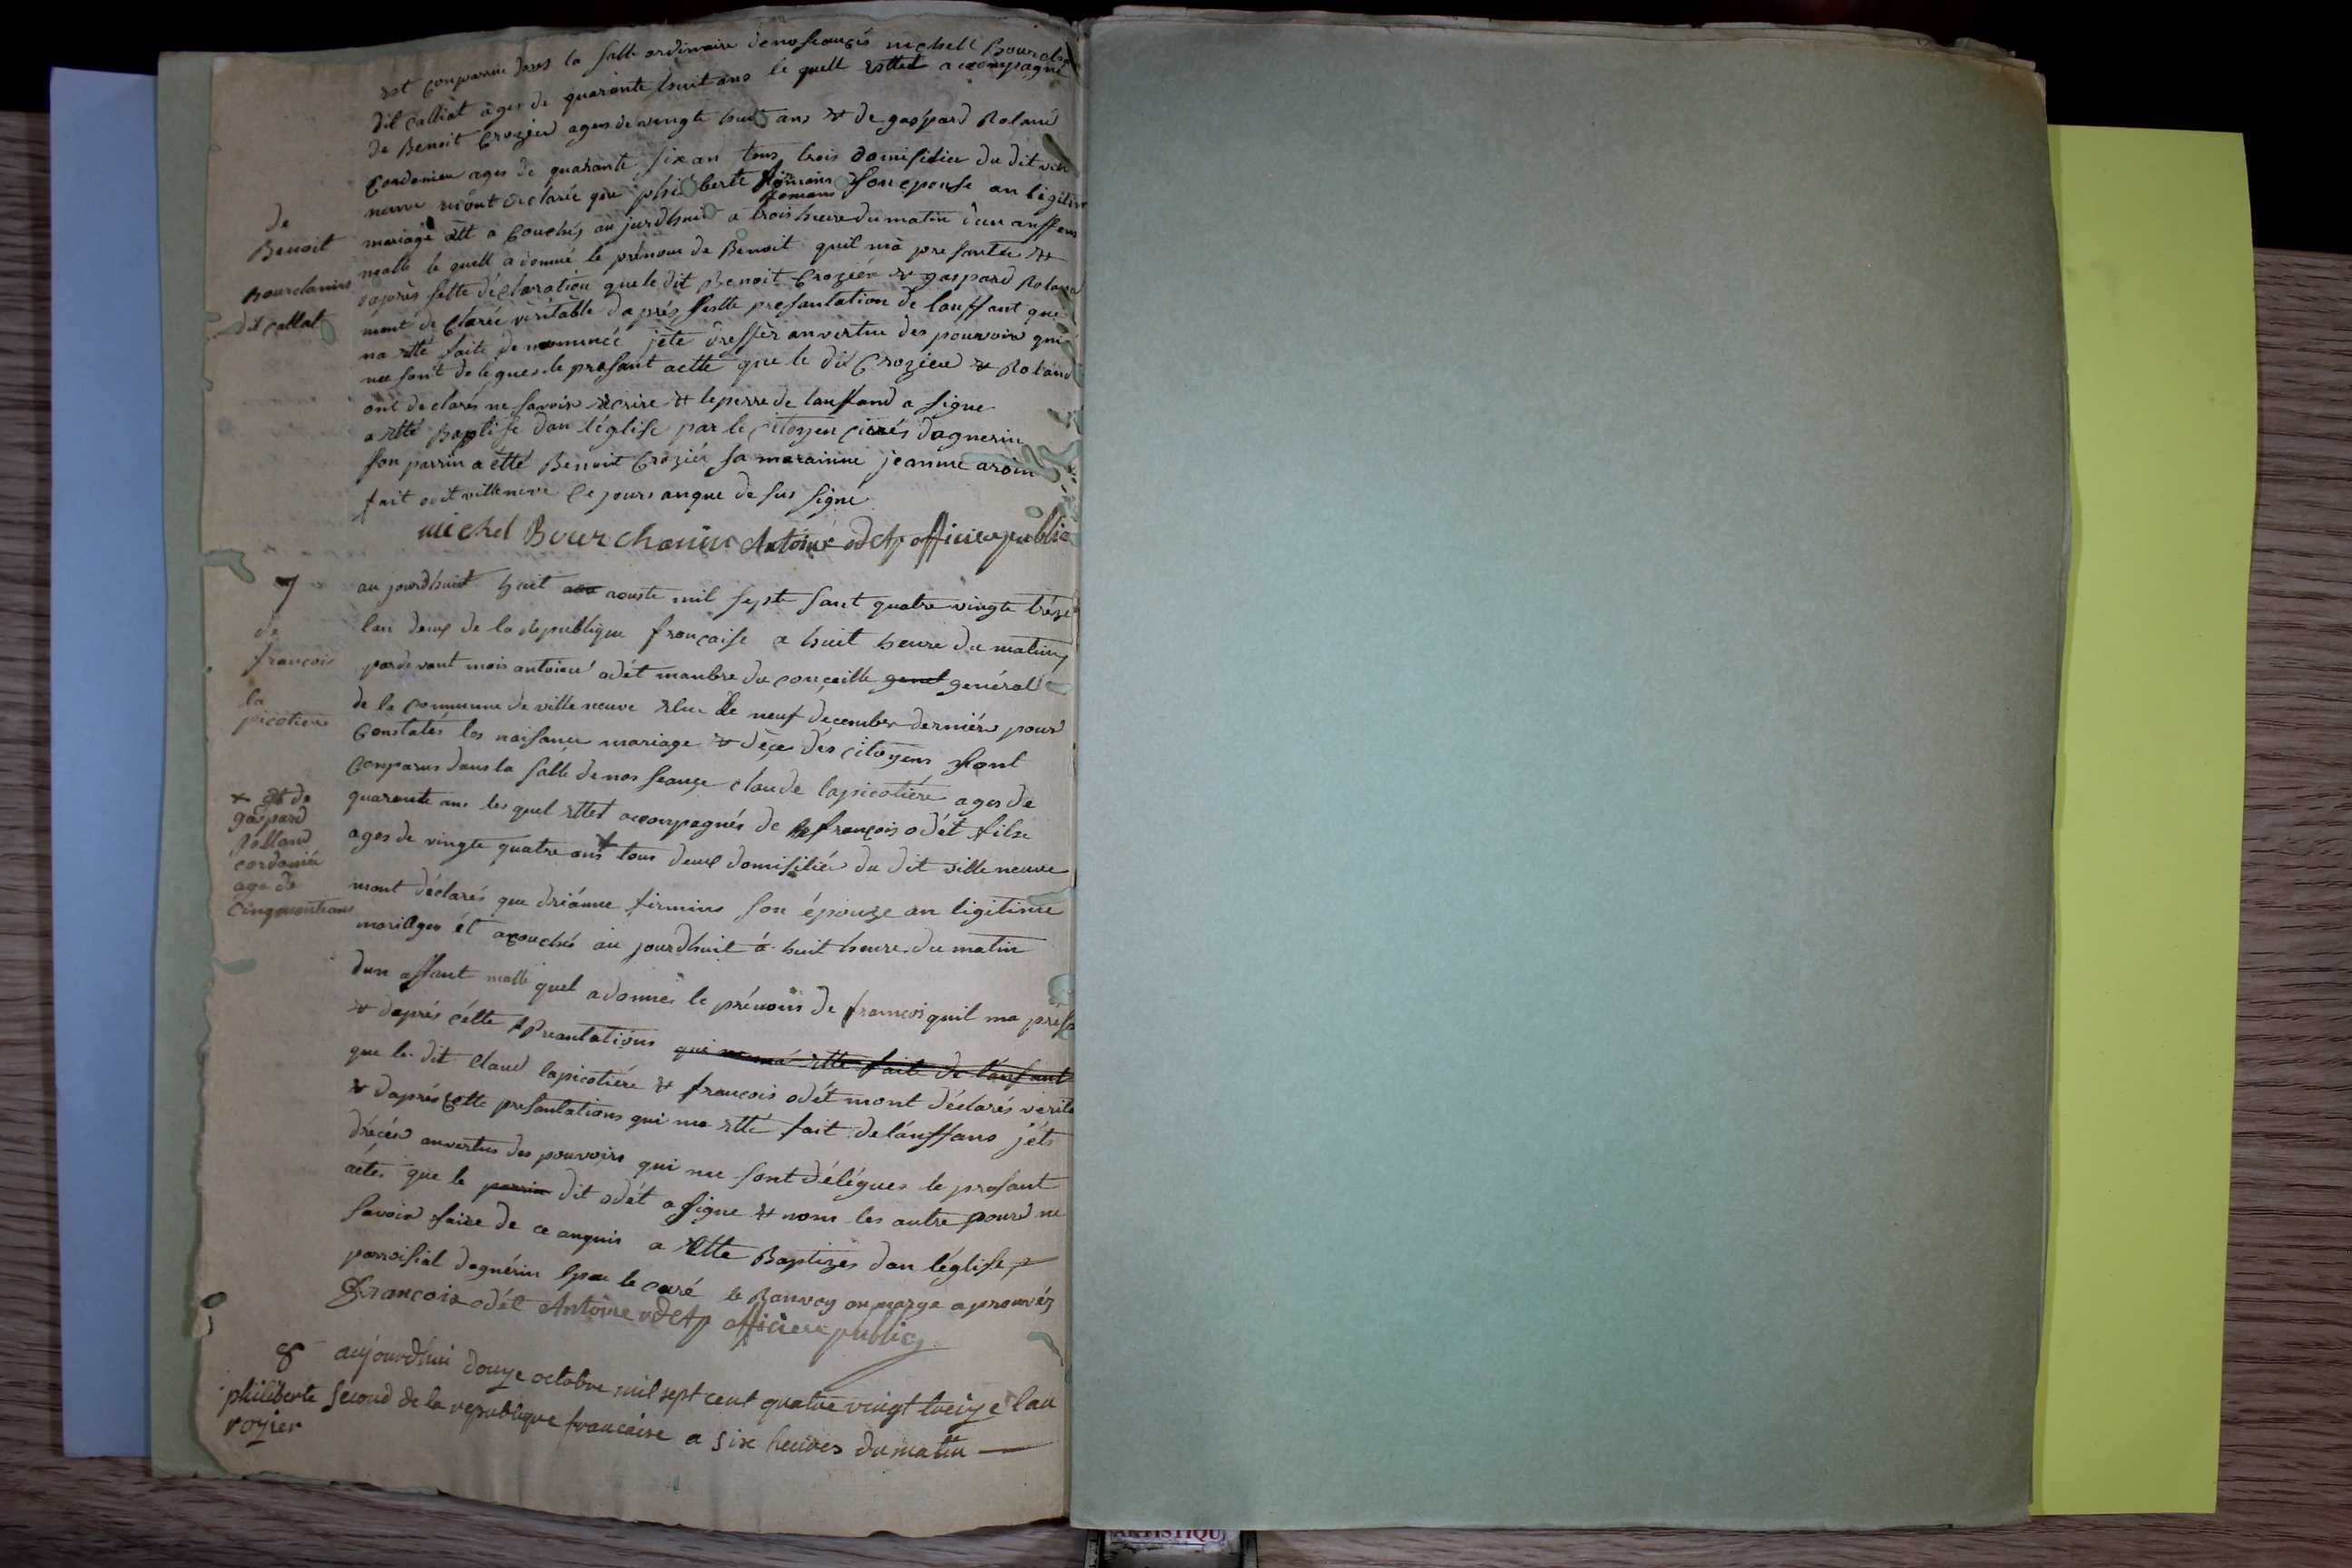 est comparue dans la salle ordinaire de nos seançes michell Bourcha
dit callat àges de quarante huit ans le quell ettet accompagné
de Benoit Crozier ages de vingte huit ans & de gaspard Roland
Cordonier ages de quarante six an tous trois domisilier du dit ville
neuve mont déclarée que philiberte Romans son epouse an légitim
mariage ett a Couchés au jurdhuit a trois heure du matin d'un anffans
malle le quell a donné le prénom de Benoit quil ma presantée &
daprès sette déclaration que le dit Benoit Crozier & gaspard Roland
mont de Clarée véritable daprés sestte presantation de lanffant que
ma etté faite denommée jète dresser anvertue des pouvoirs qui
me sont delegués le presant actte que le dit Crozier & Roland
ont declarés ne savoir écrire & le perre de lanfand a signe
a etté Baptisse dan léglise par le Citoyen Curés dagnerin
son parrin a etté Benoit Crozier sa marainne jeanne aroin
fait audit villeneve le jours anque de sus signe
michel Bourchanin Antoine odet officier public
de
Benoit
Bourchanins
dit callat
7
de
francois
la
picotiere
au jourdhuit huit aouste mil septe sant quatre vingte trèze
lan deux de la republique française a huit heure du matin
pardevant mois antoine odét manbre du conçeille general
de la commune de ville neuve elue le neuf decembre derniér pour
Constatés les naisance mariage & déçe dés citoyens sont
Conparus dans la salle de nos seançe claude lapicotiére ages de
quarante ans les quel ettet acconpagnés de françois odét fils
ages de vingte quatre ans tous deux domisiliés du dit ville neuve
mont déclarés que driánne firmins son épouze an ligitime
mariages ét acouchés au jourdhuit á huit heure du matin
dun affant malle quel a donnes le prénom de francois quil ma présa
& daprés cétte qui ma etté faite de lanfant
que le dit Claud lapicotiére & françois odét mont déclarés verita
& daprés cétte presantations qui ma etté fait de lánffans j'éts
drécér anvertus des pouvoirs qui me sont délégues le presant
actes que le dit odét a signe & nom les autre pour ne
savoir faire de ce anquis a étte Baptizés dan léglise
parroisial dagnérin par le curé le Ranvoy an marge aprouvés
François odét Antoine odet officier public
+ & de
gaspard
Rolland
cordonier
age de
Cinquantans
8 aujourd'hui douze octobre mil sept cent quatre vingt treize l'an
philiberte second de la republique francaise a six heures du matin —
rozier
ARTISTIQU